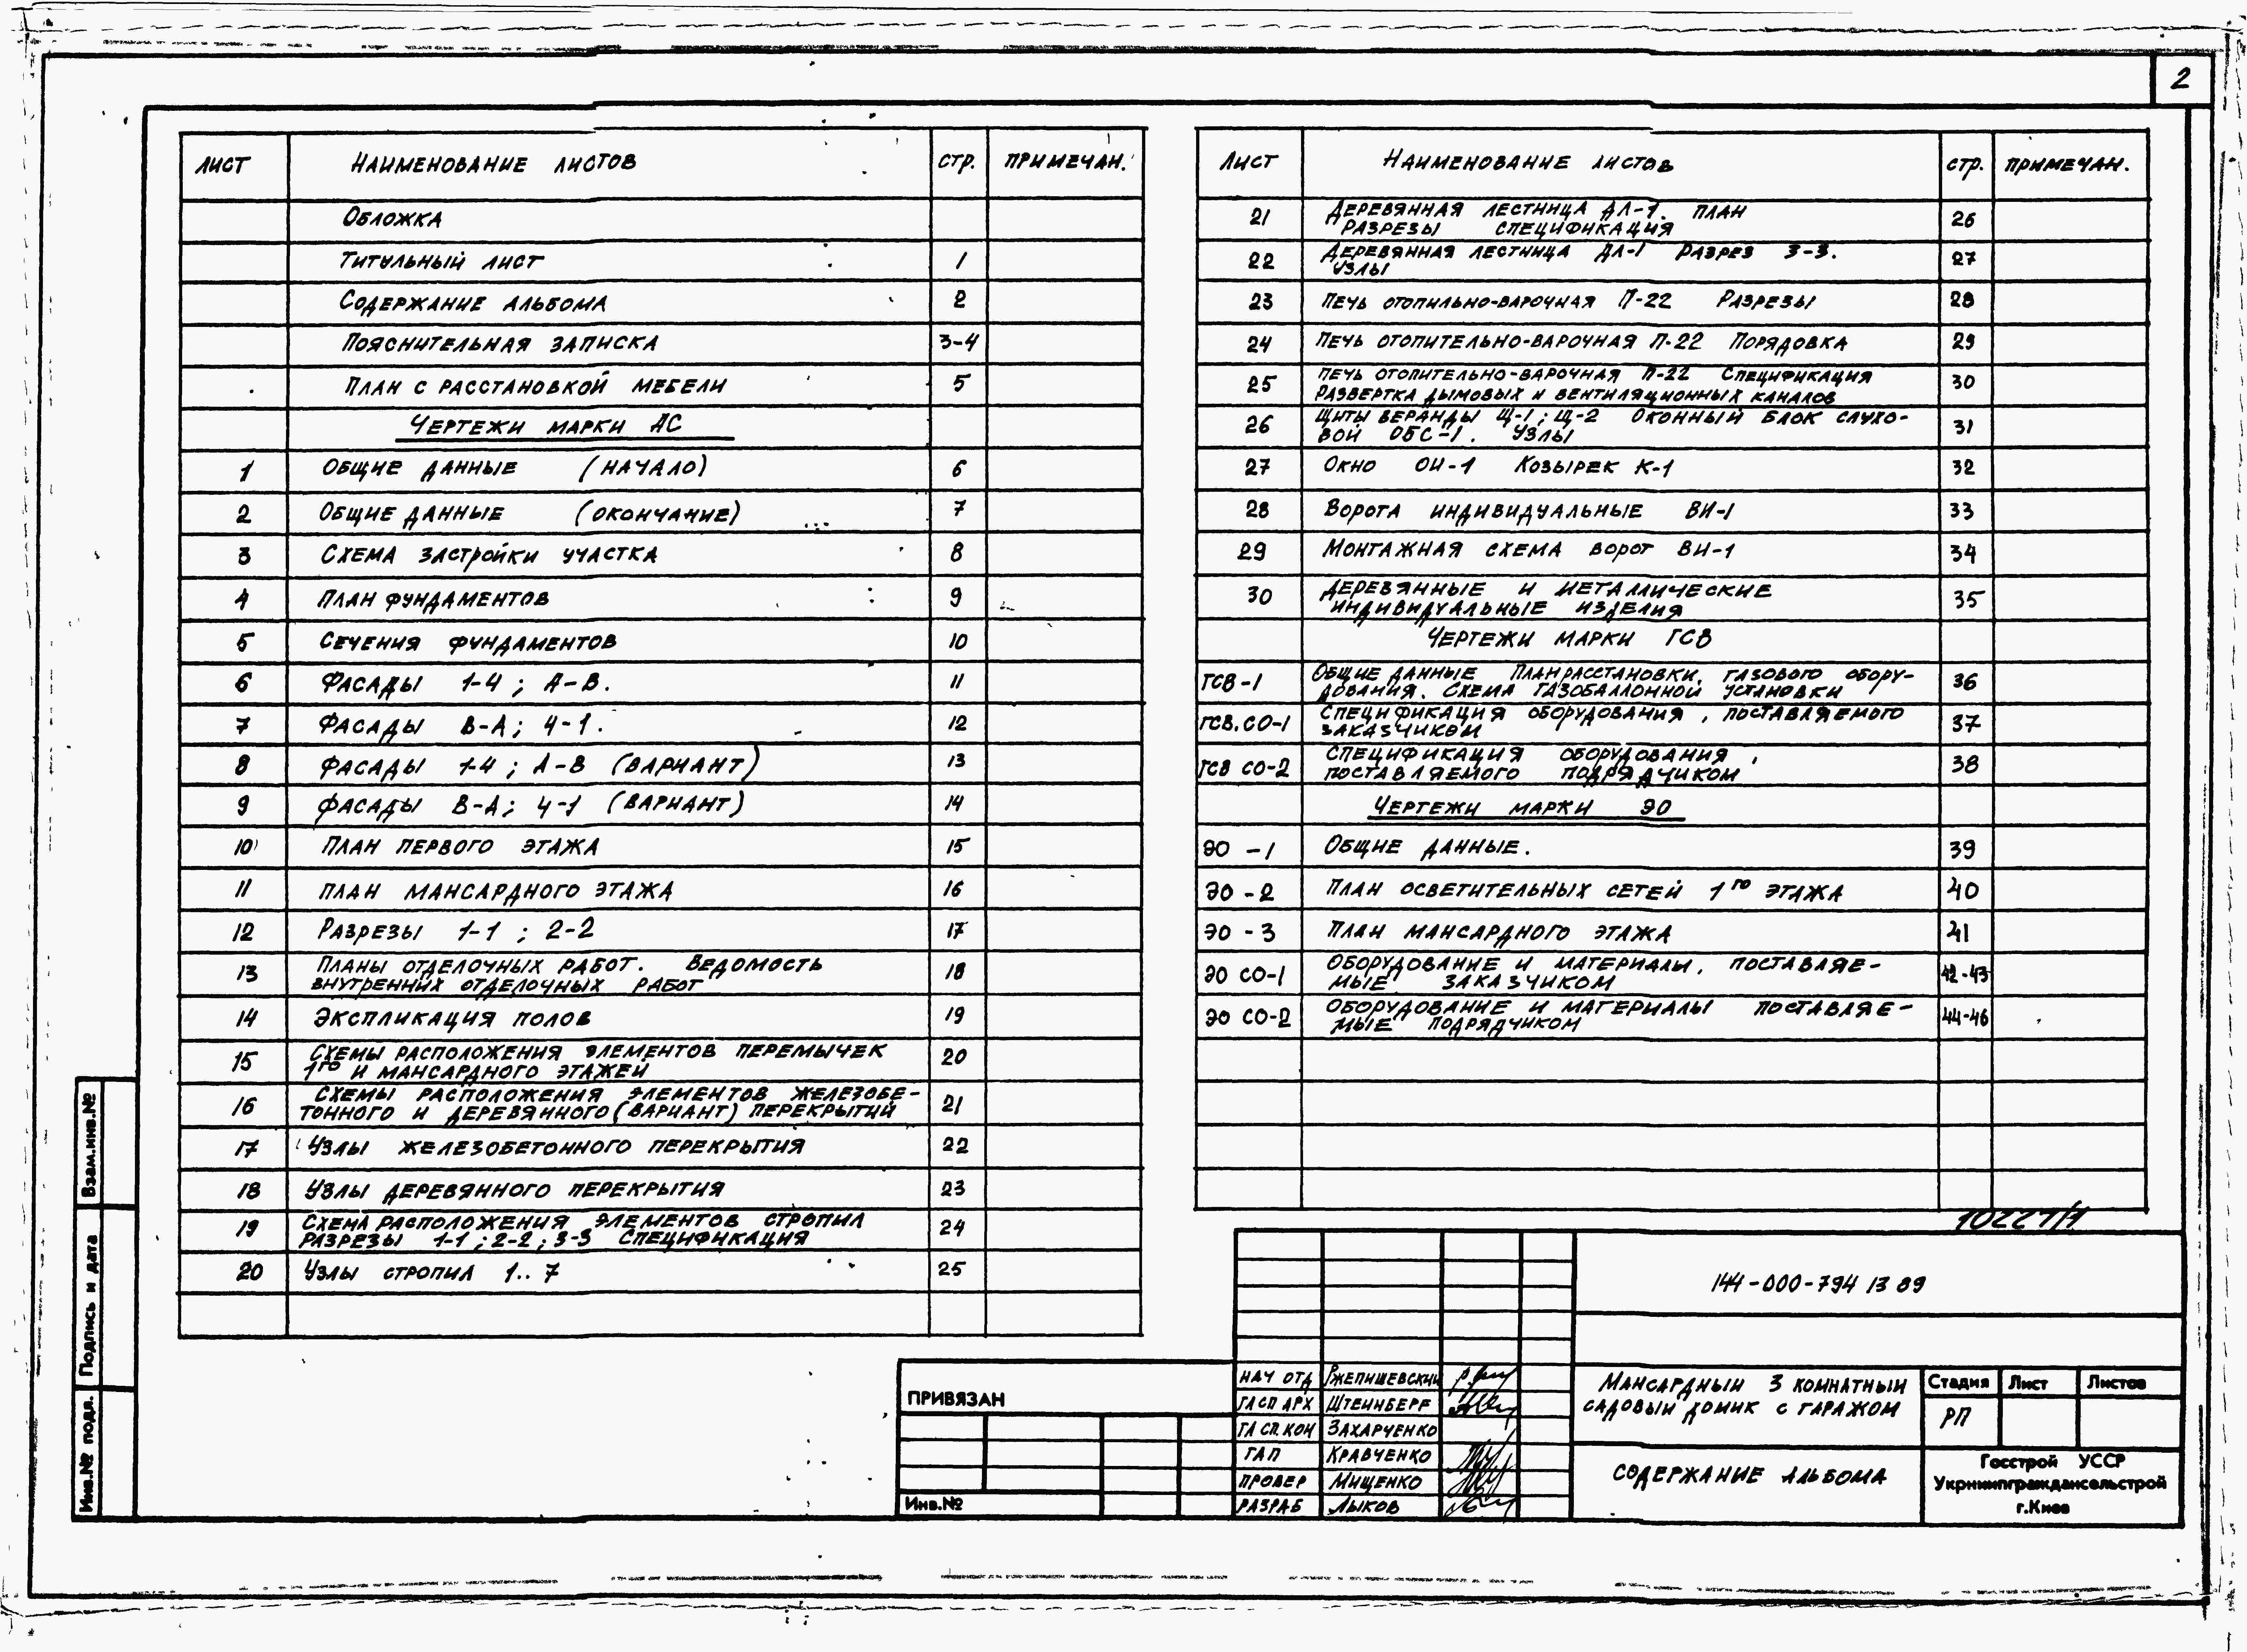 2
ЛИСТ НАИМЕНОВАНИЕ ЛИСТОВ СТР. ПРИМЕЧАН.
ОБЛОЖКА
ТИТУЛЬНЫЙ ЛИСТ 1
СОДЕРЖАНИЕ АЛЬБОМА 2
ПОЯСНИТЕЛЬНАЯ ЗАПИСКА 3-4
ПЛАН С РАССТАНОВКОЙ МЕБЕЛИ 5
ЧЕРТЕЖИ МАРКИ АС
1 ОБЩИЕ ДАННЫЕ (НАЧАЛО) 6
2 ОБЩИЕ ДАННЫЕ (ОКОНЧАНИЕ) 7
3 СХЕМА ЗАСТРОЙКИ УЧАСТКА 8
4 ПЛАН ФУНДАМЕНТОВ 9
5 СЕЧЕНИЯ ФУНДАМЕНТОВ 10
6 ФАСАДЫ 1-4; А-В. 11
7 ФАСАДЫ В-А; 4-1. 12
8 ФАСАДЫ 1-4; А-В (ВАРИАНТ) 13
9 ФАСАДЫ В-А; 4-1 (ВАРИАНТ) 14
10 ПЛАН ПЕРВОГО ЭТАЖА 15
11 ПЛАН МАНСАРДНОГО ЭТАЖА 16
12 РАЗРЕЗЫ 1-1; 2-2 17
13 ПЛАНЫ ОТДЕЛОЧНЫХ РАБОТ. ВЕДОМОСТЬ 18
ВНУТРЕННИХ ОТДЕЛОЧНЫХ РАБОТ
14 ЭКСПЛИКАЦИЯ ПОЛОВ 19
15 СХЕМЫ РАСПОЛОЖЕНИЯ ЭЛЕМЕНТОВ ПЕРЕМЫЧЕК 20
1ГО И МАНСАРДНОГО ЭТАЖЕЙ
16 СХЕМЫ РАСПОЛОЖЕНИЯ ЭЛЕМЕНТОВ ЖЕЛЕЗОБЕ- 21
ТОННОГО И ДЕРЕВЯННОГО (ВАРИАНТ) ПЕРЕКРЫТИЙ
17 УЗЛЫ ЖЕЛЕЗОБЕТОННОГО ПЕРЕКРЫТИЯ 22
18 УЗЛЫ ДЕРЕВЯННОГО ПЕРЕКРЫТИЯ 23
19 СХЕМА РАСПОЛОЖЕНИЯ ЭЛЕМЕНТОВ СТРОПИЛ 24
РАЗРЕЗЫ 1-1; 2-2; 3-3 СПЕЦИФИКАЦИЯ
20 УЗЛЫ СТРОПИЛ 1..7 25
ЛИСТ НАИМЕНОВАНИЕ ЛИСТОВ СТР. ПРИМЕЧАН.
21 ДЕРЕВЯННАЯ ЛЕСТНИЦА ДЛ-1. ПЛАН 26
РАЗРЕЗЫ СПЕЦИФИКАЦИЯ
22 ДЕРЕВЯННАЯ ЛЕСТНИЦА ДЛ-1 РАЗРЕЗ 3-3. 27
УЗЛЫ
23 ПЕЧЬ ОТОПИЛЬНО-ВАРОЧНАЯ П-22 РАЗРЕЗЫ 28
24 ПЕЧЬ ОТОПИТЕЛЬНО-ВАРОЧНАЯ П-22 ПОРЯДОВКА 29
25 ПЕЧЬ ОТОПИТЕЛЬНО-ВАРОЧНАЯ П-22 СПЕЦИФИКАЦИЯ 30
РАЗВЕРТКА ДЫМОВЫХ И ВЕНТИЛЯЦИОННЫХ КАНАЛОВ
26 ЩИТЫ ВЕРАНДЫ Щ-1; Щ-2 ОКОННЫЙ БЛОК СЛУХО- 31
ВОЙ ОБС-1. УЗЛЫ
27 ОКНО ОИ-1 КОЗЫРЕК К-1 32
28 ВОРОТА ИНДИВИДУАЛЬНЫЕ ВИ-1 33
29 МОНТАЖНАЯ СХЕМА ВОРОТ ВИ-1 34
30 ДЕРЕВЯННЫЕ И МЕТАЛЛИЧЕСКИЕ 35
ИНДИВИДУАЛЬНЫЕ ИЗДЕЛИЯ
ЧЕРТЕЖИ МАРКИ ГСВ
ГСВ-1 ОБЩИЕ ДАННЫЕ ПЛАН РАССТАНОВКИ, ГАЗОВОГО ОБОРУ- 36
ДОВАНИЯ. СХЕМА ГАЗОБАЛЛОННОЙ УСТАНОВКИ
ГСВ.СО-1 СПЕЦИФИКАЦИЯ ОБОРУДОВАНИЯ, ПОСТАВЛЯЕМОГО 37
ЗАКАЗЧИКОМ
ГСВ СО-2 СПЕЦИФИКАЦИЯ ОБОРУДОВАНИЯ, 38
ПОСТАВЛЯЕМОГО ПОДРЯДЧИКОМ
ЧЕРТЕЖИ МАРКИ ЭО
ЭО-1 ОБЩИЕ ДАННЫЕ. 39
ЭО-2 ПЛАН ОСВЕТИТЕЛЬНЫХ СЕТЕЙ 1ГО ЭТАЖА 40
ЭО-3 ПЛАН МАНСАРДНОГО ЭТАЖА 41
ЭО СО-1 ОБОРУДОВАНИЕ И МАТЕРИАЛЫ, ПОСТАВЛЯЕ- 42-43
МЫЕ ЗАКАЗЧИКОМ
ЭО СО-2 ОБОРУДОВАНИЕ И МАТЕРИАЛЫ ПОСТАВЛЯЕ- 44-46
МЫЕ ПОДРЯДЧИКОМ
10227/1
144-000-794 13 89
НАЧ ОТД РЖЕПИШЕВСКИЙ
ГЛ СП АРХ ШТЕЙНБЕРГ
ГЛ СП. КОН ЗАХАРЧЕНКО
ГАП КРАВЧЕНКО
ПРОВЕР МИЩЕНКО
РАЗРАБ ЛЫКОВ
МАНСАРДНЫЙ 3 КОМНАТНЫЙ
САДОВЫЙ ДОМИК С ГАРАЖОМ
Стадия Лист Листов
РП
СОДЕРЖАНИЕ АЛЬБОМА
Госстрой УССР
Укрниипграждансельстрой
г.Киев
ПРИВЯЗАН
Инв.№
Взам.инв.№
Подпись и дата
Инв.№ подл.